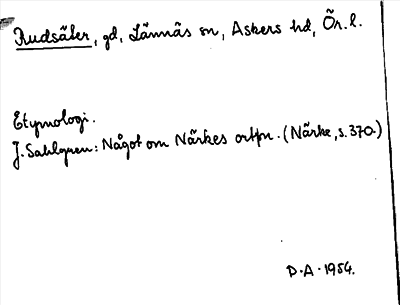 Rudsäter, gd, Lännäs sn, Askers hd, Ör. l.
Etymologi.
J. Sahlgren: Något om Närkes ortpn. (Närke, s. 370.)
D. A. 1954.